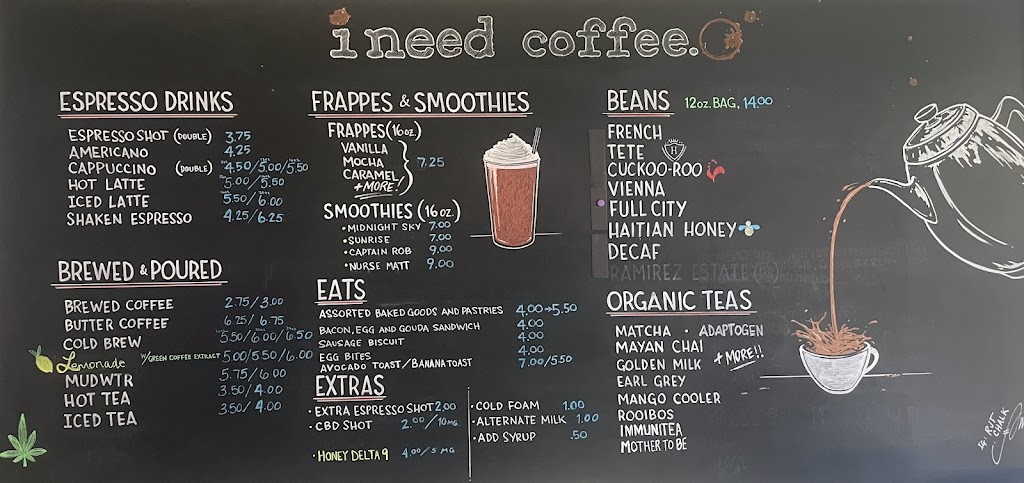 i need coffee.
ESPRESSO DRINKS
ESPRESSO SHOT (DOUBLE) 3.75
AMERICANO 4.25
CAPPUCCINO (DOUBLE) 4.50/5.00/5.50
HOT LATTE 5.00/5.50
ICED LATTE 5.50/6.00
SHAKEN ESPRESSO 4.25/6.25
BREWED & POURED
BREWED COFFEE 2.75/3.00
BUTTER COFFEE 6.25/6.75
COLD BREW 5.50/6.00/6.50
Lemonade W/GREEN COFFEE EXTRACT 5.00/5.50/6.00
MUDWTR 5.75/6.00
HOT TEA 3.50/4.00
ICED TEA 3.50/4.00
FRAPPES & SMOOTHIES
FRAPPES (16oz.)
VANILLA
MOCHA 7.25
CARAMEL
+MORE!
SMOOTHIES (16oz.)
• MIDNIGHT SKY 7.00
• SUNRISE 7.00
• CAPTAIN ROB 9.00
• NURSE MATT 9.00
EATS
ASSORTED BAKED GOODS AND PASTRIES 4.00→5.50
BACON, EGG AND GOUDA SANDWICH 4.00
SAUSAGE BISCUIT 4.00
EGG BITES 4.00
AVOCADO TOAST/BANANA TOAST 7.00/5.50
EXTRAS
• EXTRA ESPRESSO SHOT 2.00
• CBD SHOT 2.00/10MG.
• HONEY DELTA 9 4.00/5 MG
• COLD FOAM 1.00
• ALTERNATE MILK 1.00
• ADD SYRUP .50
BEANS 12oz. BAG, 14.00
FRENCH
TETE H
CUCKOO-ROO
VIENNA
FULL CITY
HAITIAN HONEY
DECAF
RAMIREZ ESTATE
ORGANIC TEAS
MATCHA • ADAPTOGEN
MAYAN CHAI
GOLDEN MILK +MORE!!
EARL GREY
MANGO COOLER
ROOIBOS
IMMUNITEA
MOTHER TO BE
CHALK